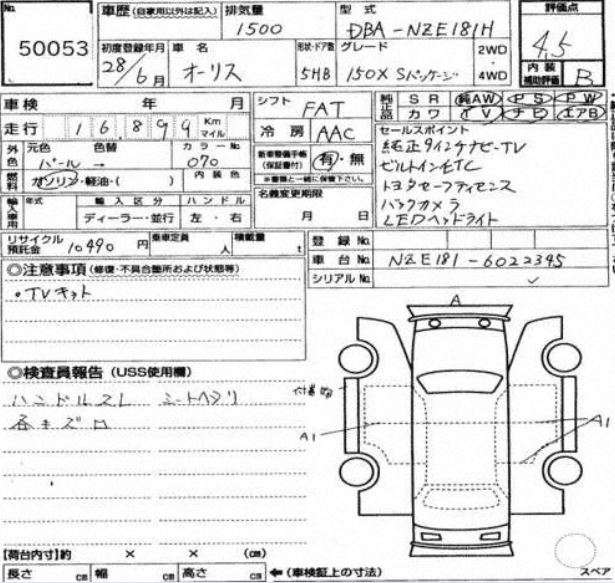 No.
50053
車歴 (自家用以外は記入)
排気量 1500
型式 DBA-NZE181H
評価点 4.5
初度登録年月 28年6月
車名 オーリス
形状・ドア数 5HB
グレード 150X Sパッケージ
2WD・4WD
内装補助評価 B
車検 年 月
シフト FAT
純正品 SR 純AW PS PW
カワ TV ナビ エアB
走行 16,899 Km マイル
冷房 AAC
セールスポイント
純正9インチナビ・TV
ビルトインETC
トヨタセーフティセンス
バックカメラ
LEDヘッドライト
外色 元色 パール → 色替 カラーNo. 070
新車整備手帳(保証書付) 有・無
※書類と一緒に保管下さい。
燃料 ガソリン・軽油・( ) 内装色
名義変更期限
月 日
輸入車用 年式 輸入区分 ハンドル
ディーラー・並行 左・右
リサイクル預託金 10490円
乗車定員 人
積載量 t
登録No.
車台No. NZE181-6022395
シリアルNo.
◎注意事項(修復・不具合箇所および状態等)
・TVキット
◎検査員報告(USS使用欄)
ハンドルスレ シートヘタリ
各キズ
A
A1
A1
[荷台内寸]約 × × (cm)
長さ cm 幅 cm 高さ cm ←(車検証上の寸法)
スペア